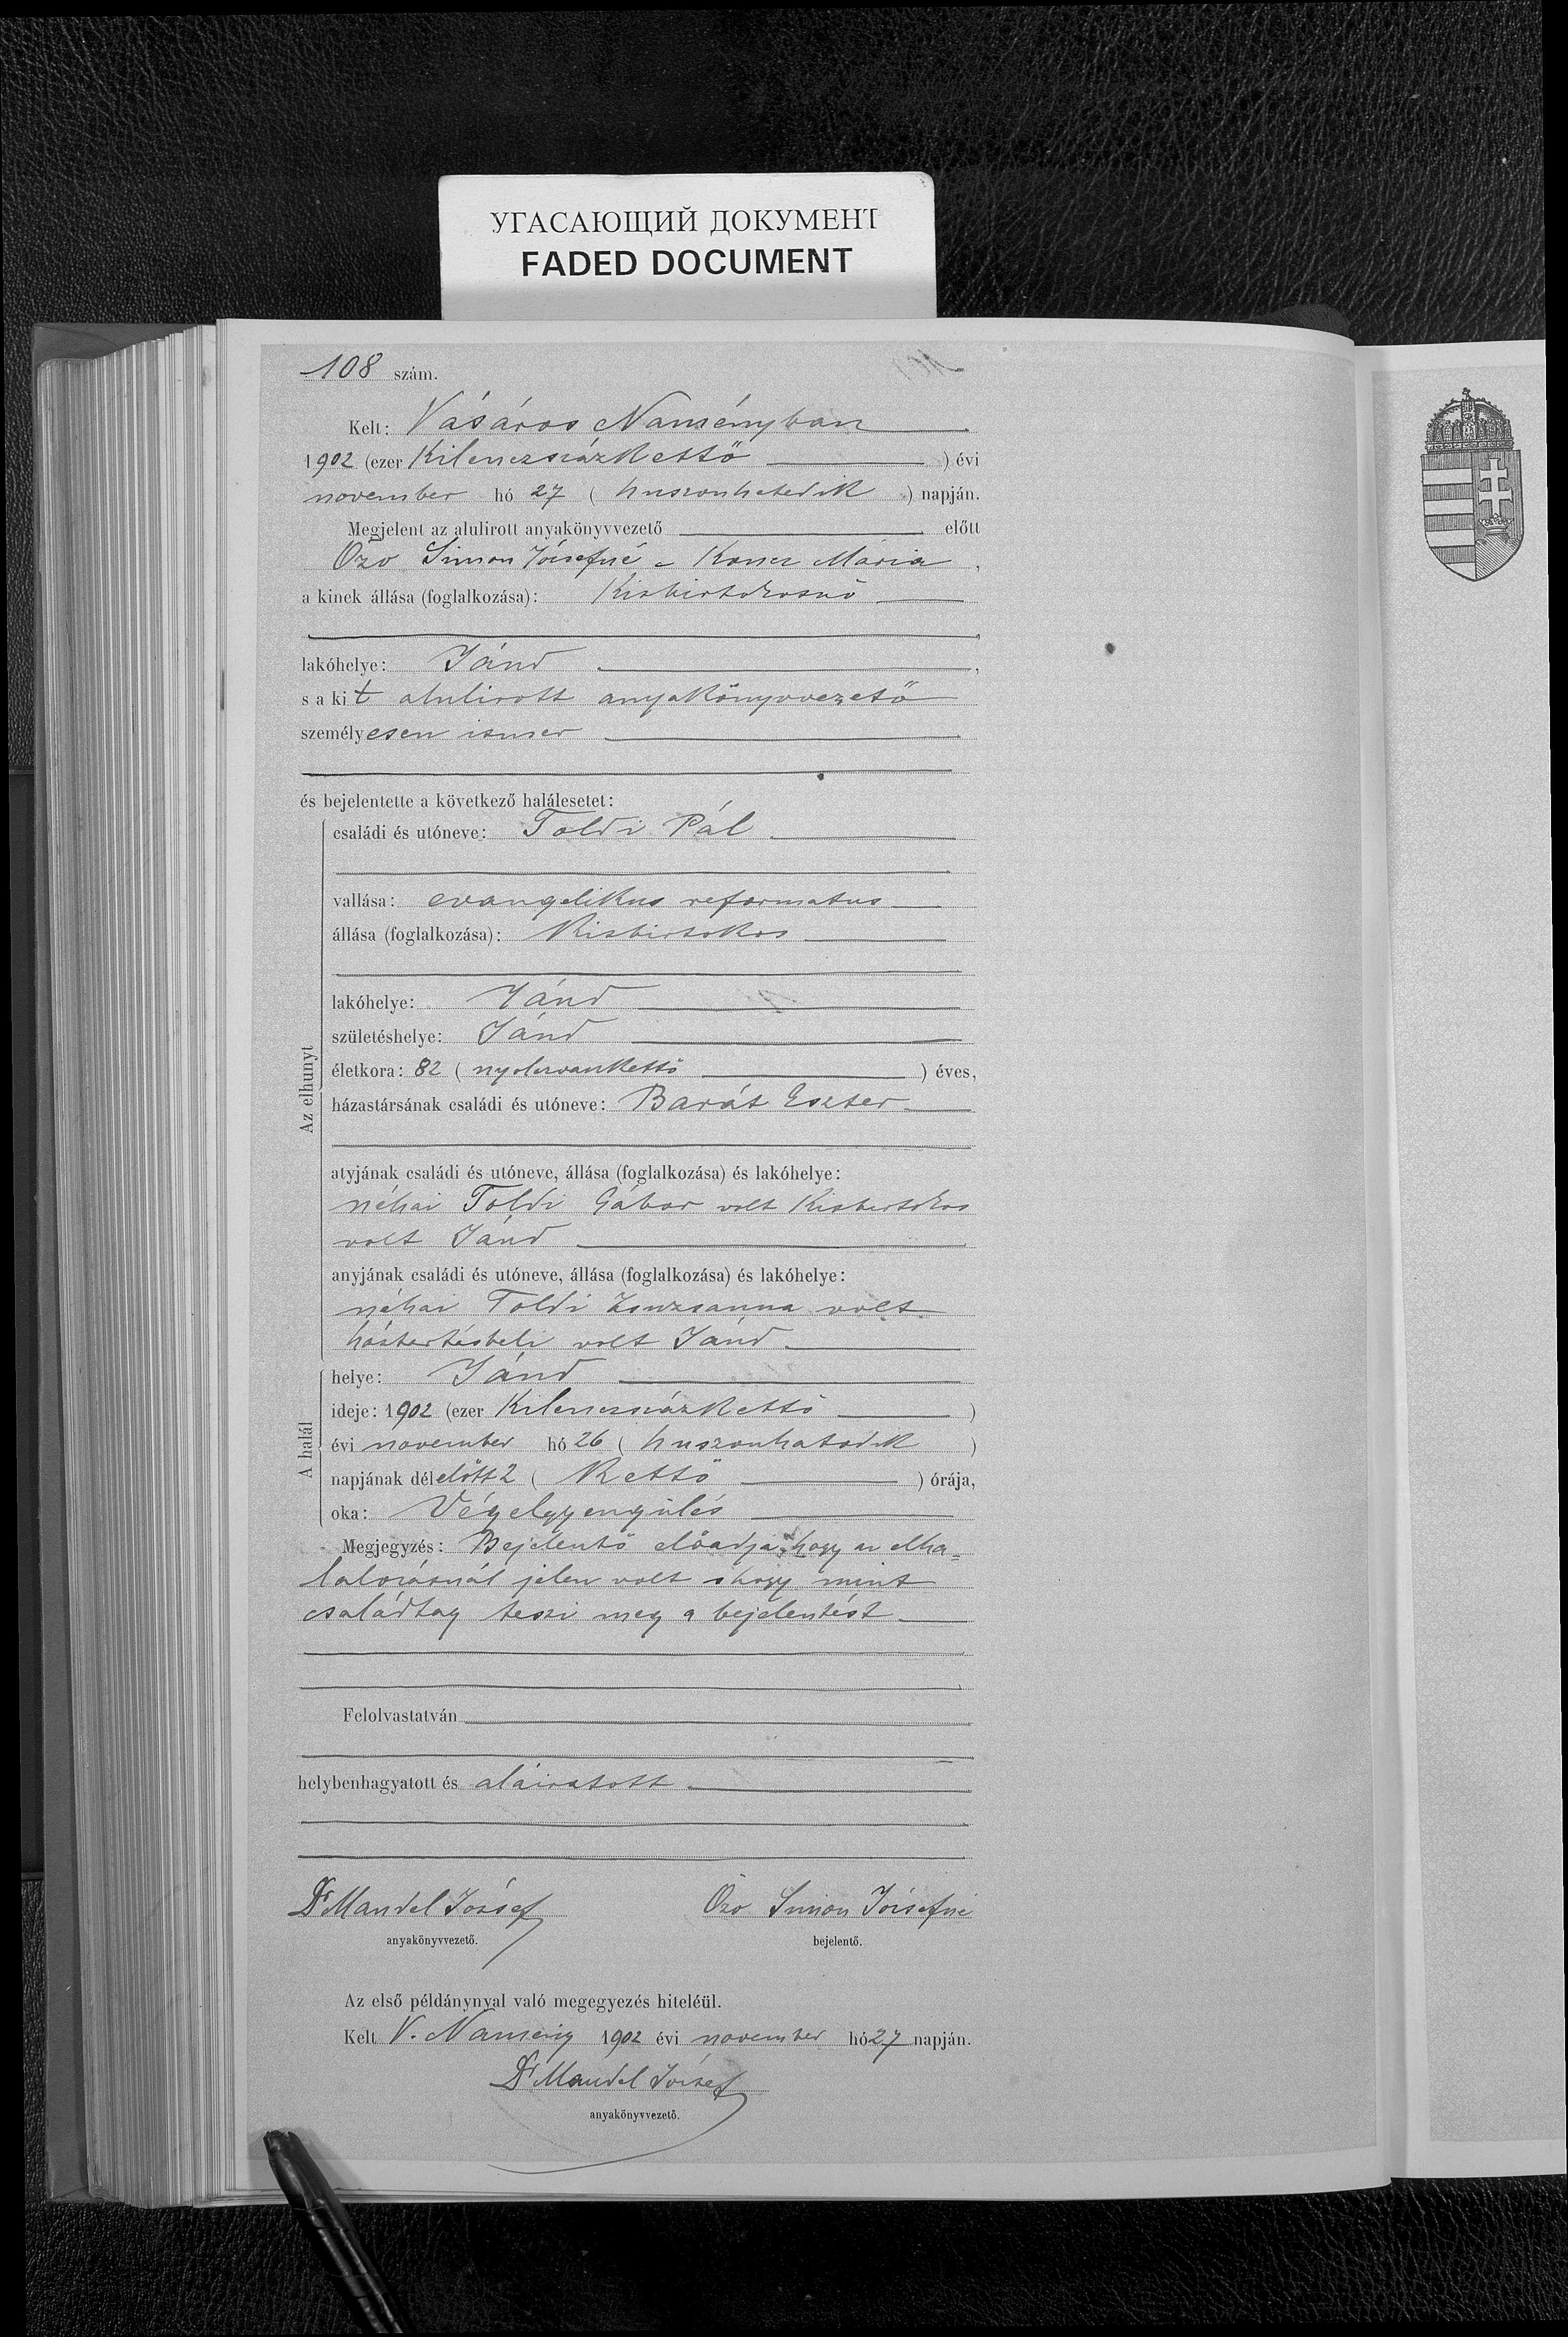 УГАСАЮЩИЙ ДОКУМЕНТ
FADED DOCUMENT
108 szám.
Kelt: Vásáros Naményban
1902 (ezer Kilenczszázkettő ) évi
november hó 27 ( huszonhetedik ) napján.
Megjelent az alulirott anyakönyvvezető előtt
Özv Simon Józsefné - Koncz Mária ,
a kinek állása (foglalkozása): Kisbirtokosnő
lakóhelye: Jánd ,
s a kit alulirott anyakönyvvezető
személyesen ismer
és bejelentette a következő halálesetet:
Az elhunyt
családi és utóneve: Toldi Pál
vallása: evangelikus reformatus
állása (foglalkozása): Kisbirtokos
lakóhelye: Jánd
születéshelye: Jánd
életkora: 82 ( nyolczvankettő ) éves,
házastársának családi és utóneve: Barát Eszter
atyjának családi és utóneve, állása (foglalkozása) és lakóhelye:
néhai Toldi Gábor volt Kisbirtokos
volt Jánd
anyjának családi és utóneve, állása (foglalkozása) és lakóhelye:
néhai Toldi Zsuzsanna volt
háztartásbeli volt Jánd
A halál
helye: Jánd
ideje: 1902 (ezer Kilenczszázkettő )
évi november hó 26 ( huszonhatodik )
napjának délelőtt 2 ( Kettő ) órája,
oka: Végelgyengülés
Megjegyzés: Bejelentő előadja, hogy az elha=
lálozásnál jelen volt s hogy mint
családtag teszi meg a bejelentést
Felolvastatván
helybenhagyatott és aláiratott
Dr Mandel József Özv Simon Józsefné
anyakönyvvezető. bejelentő.
Az első példánynyal való megegyezés hiteléül.
Kelt V. Namény 1902 évi november hó 27 napján.
Dr Mandel József
anyakönyvvezető.